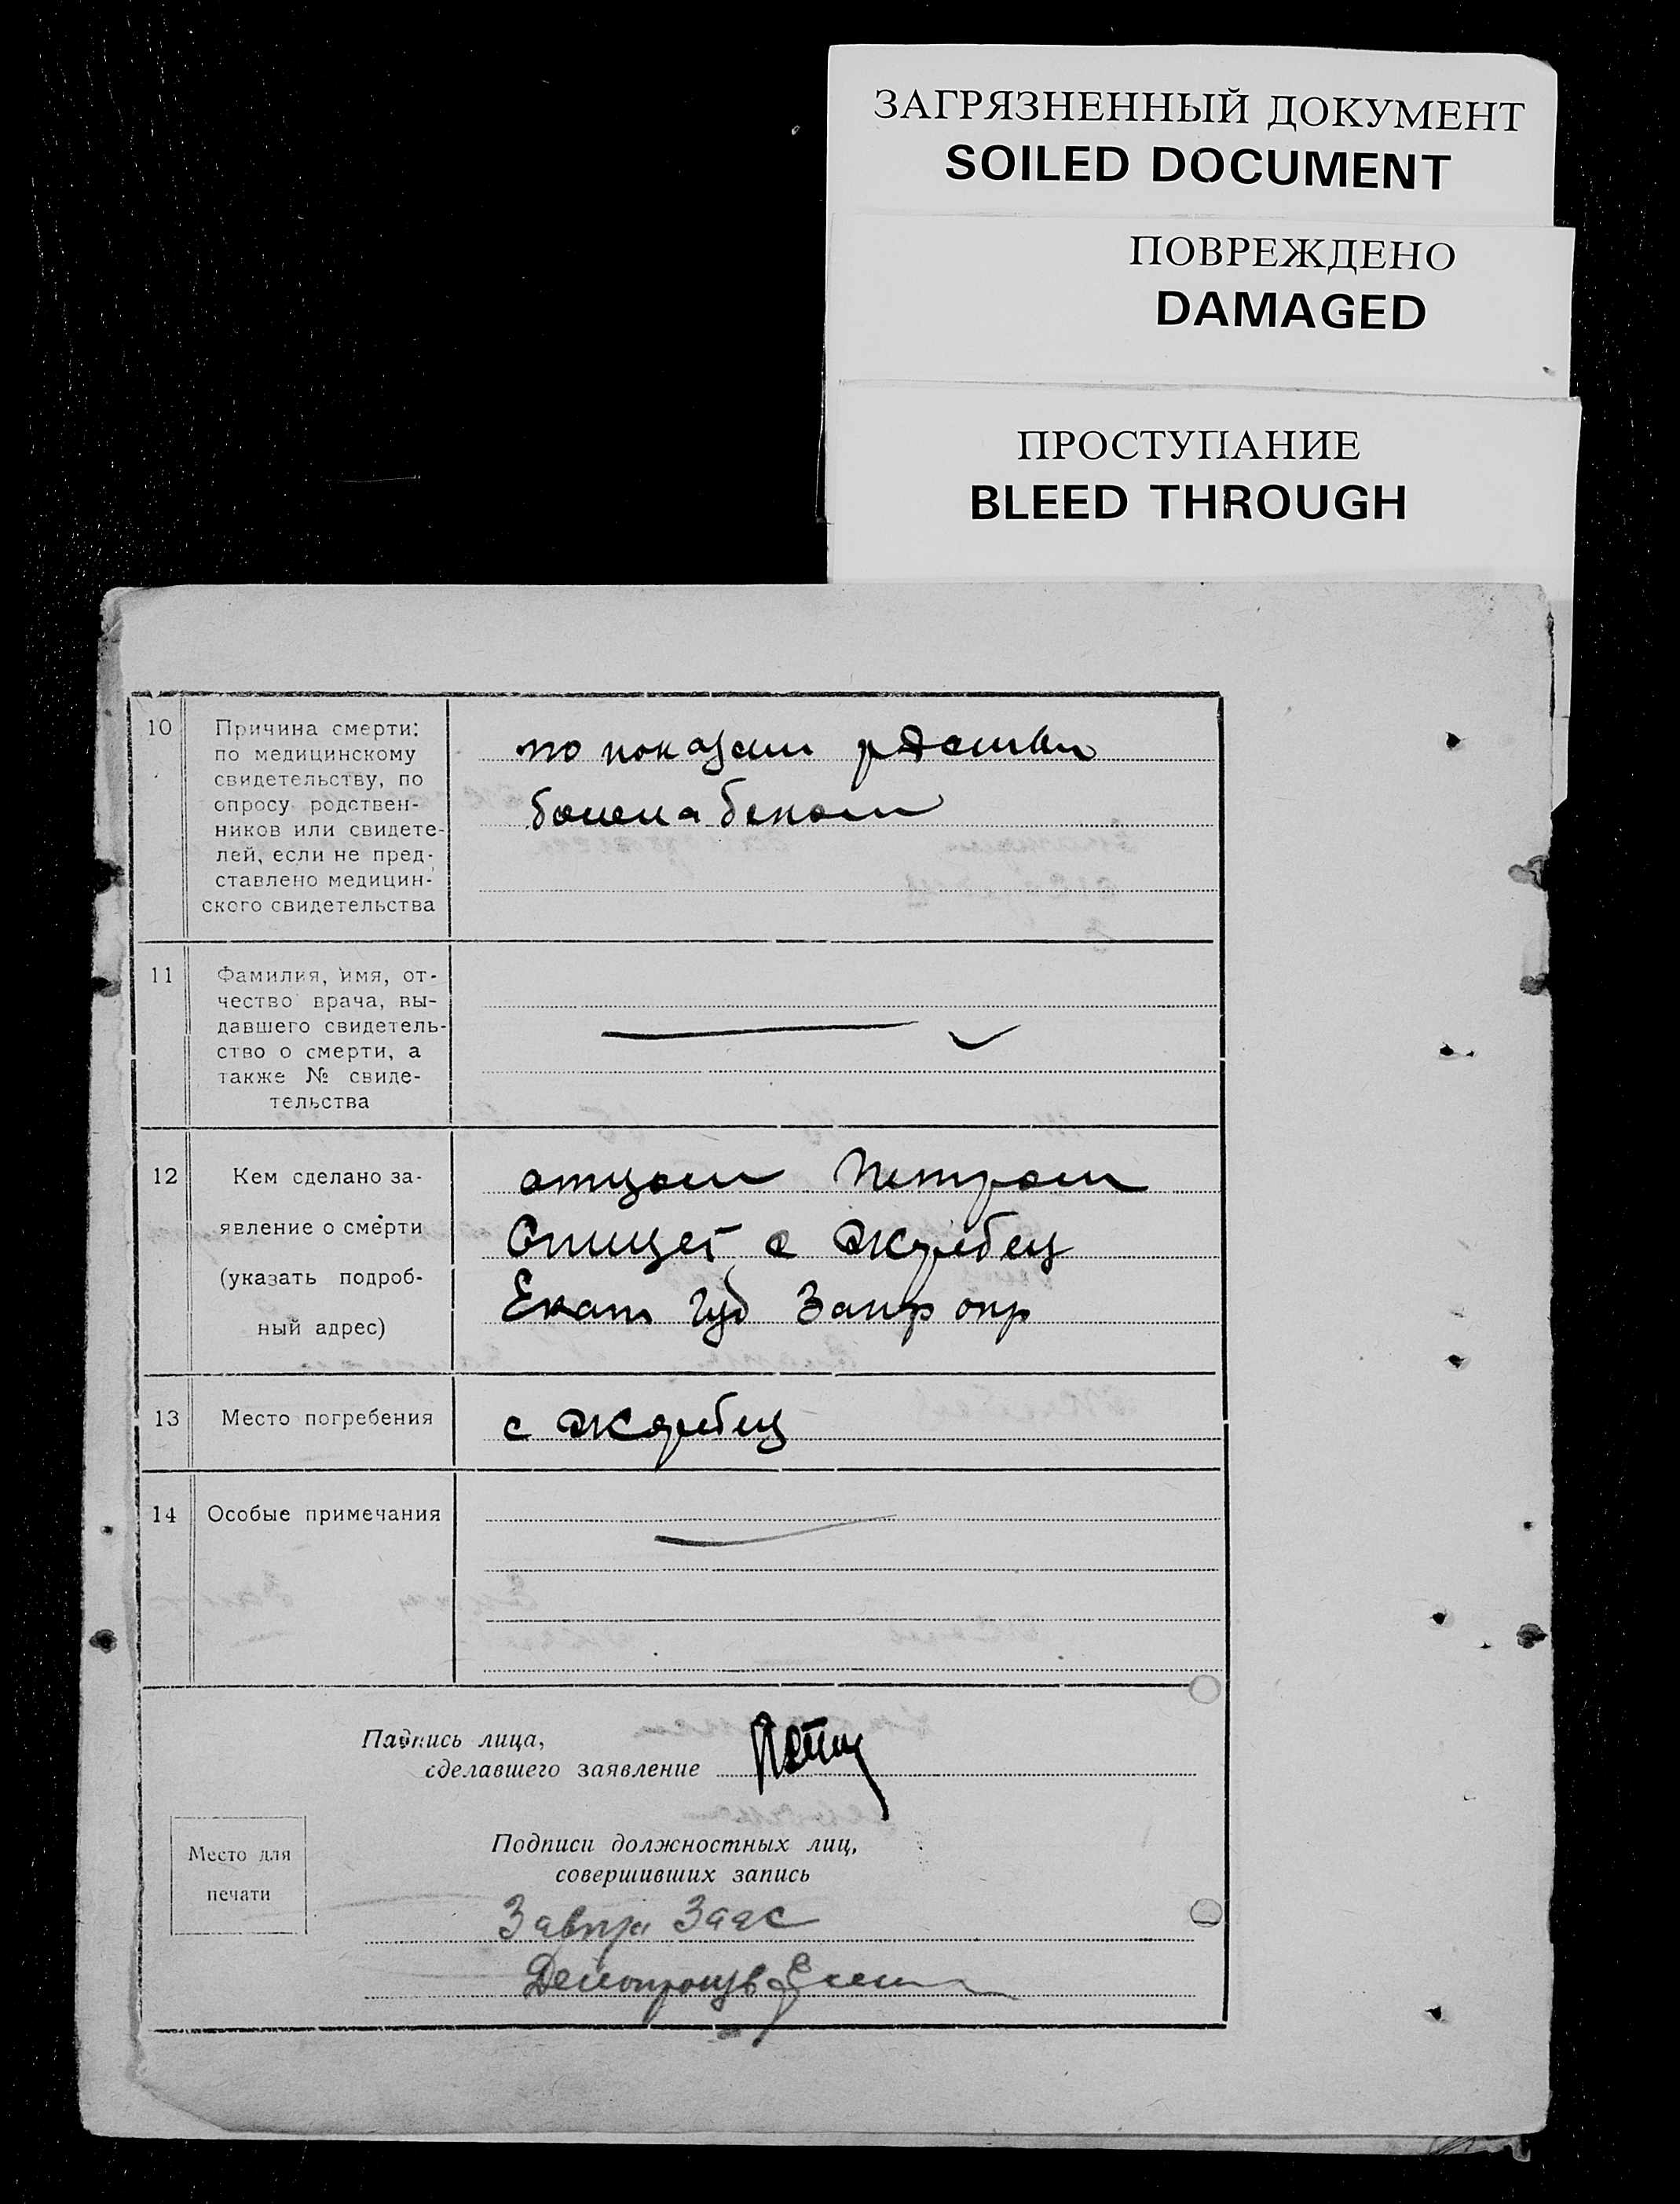 ЗАГРЯЗНЕННЫЙ ДОКУМЕНТ
SOILED DOCUMENT
ПОВРЕЖДЕНО
DAMAGED
ПРОСТУПАНИЕ
BLEED THROUGH
10
Причина смерти:
по медицинскому
свидетельству, по
опросу родствен-
ников или свидете-
лей, если не пред-
ставлено медицин-
ского свидетельства
по
11
Фамилия, имя, от-
чество врача, вы-
давшего свидетель-
ство о смерти, а
также № свиде-
тельства
12
Кем сделано за-
явление о смерти
(указать подроб-
ный адрес)
отцом Петром
с Жеребец
Екат Губ Запор окр
13
Место погребения
с Жеребец
14
Особые примечания
Подпись лица,
сделавшего заявление
Место для
печати
Подписи должностных лиц,
совершивших запись
Загс
Делопроизв